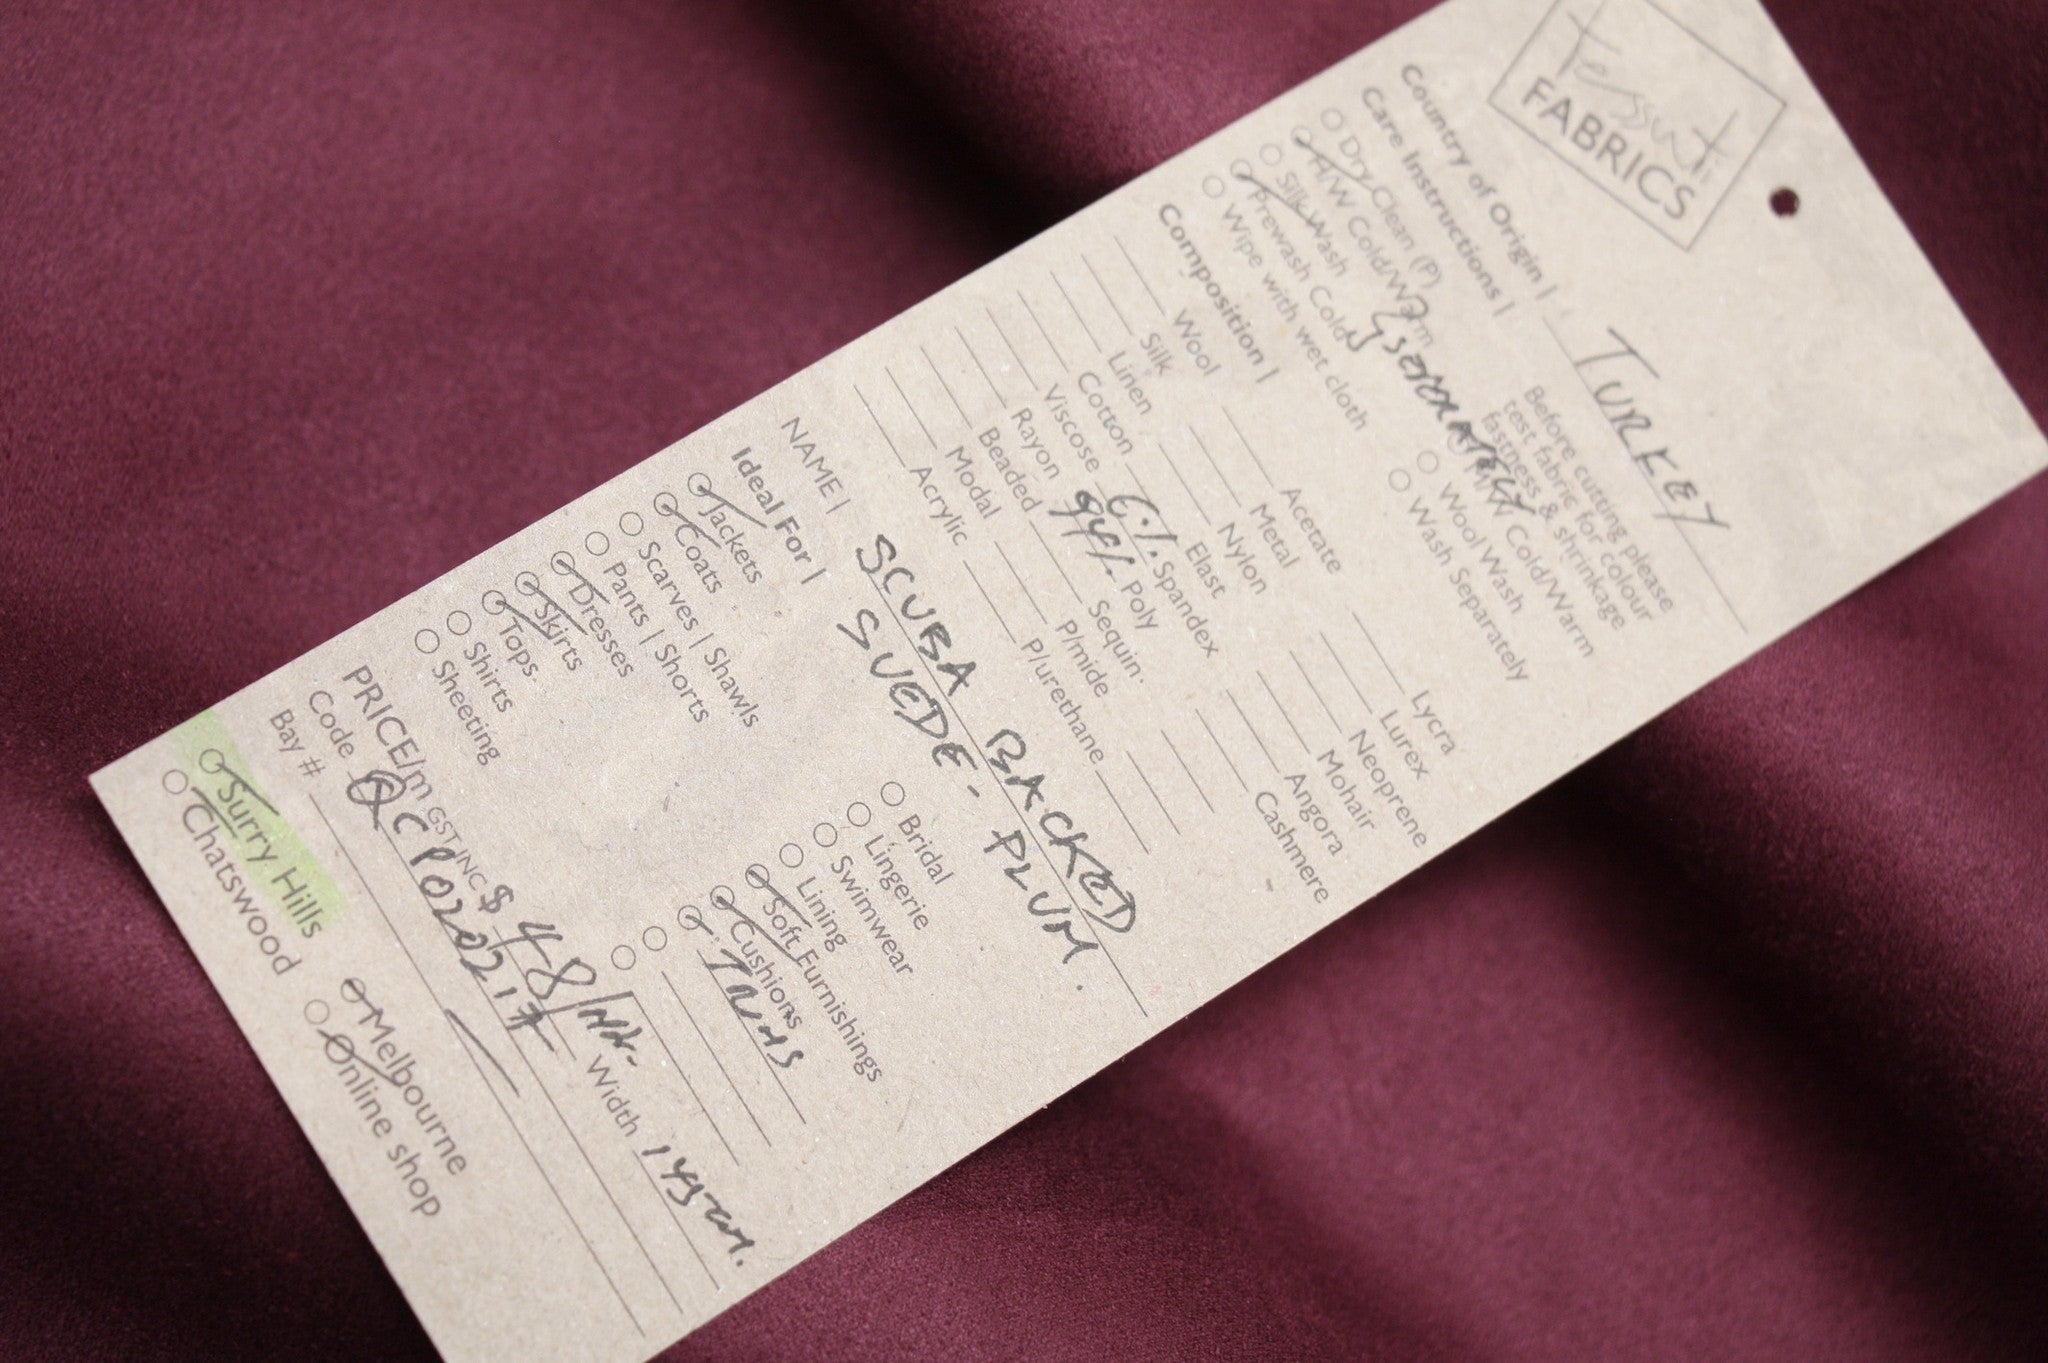 Tessuti
FABRICS
Country of Origin | TURKEY
Care Instructions |
Before cutting please
test fabric for colour
fastness & shrinkage
Dry Clean (P)
H/W Cold/Warm
Silk Wash
Prewash Cold
Wipe with wet cloth
SEPARATELY
M/W Cold/Warm
Wool Wash
Wash Separately
Composition |
Wool
Silk
Linen
Cotton
Viscose
Rayon
Beaded
Modal
Acrylic
Acetate
Metal
Nylon
Elast
6% Spandex
94% Poly
Sequin
P/mide
P/urethane
Lycra
Lurex
Neoprene
Mohair
Angora
Cashmere
NAME | SCUBA BACKED
SUEDE - PLUM.
Ideal For |
Jackets
Coats
Scarves | Shawls
Pants | Shorts
Dresses
Skirts
Tops
Shirts
Sheeting
Bridal
Lingerie
Swimwear
Lining
Soft Furnishings
Cushions
TRIMS
PRICE/m GST INC $ 48/Mtr. Width 145cm.
Code QCP0220217
Bay #
Surry Hills
Chatswood
Melbourne
Online shop